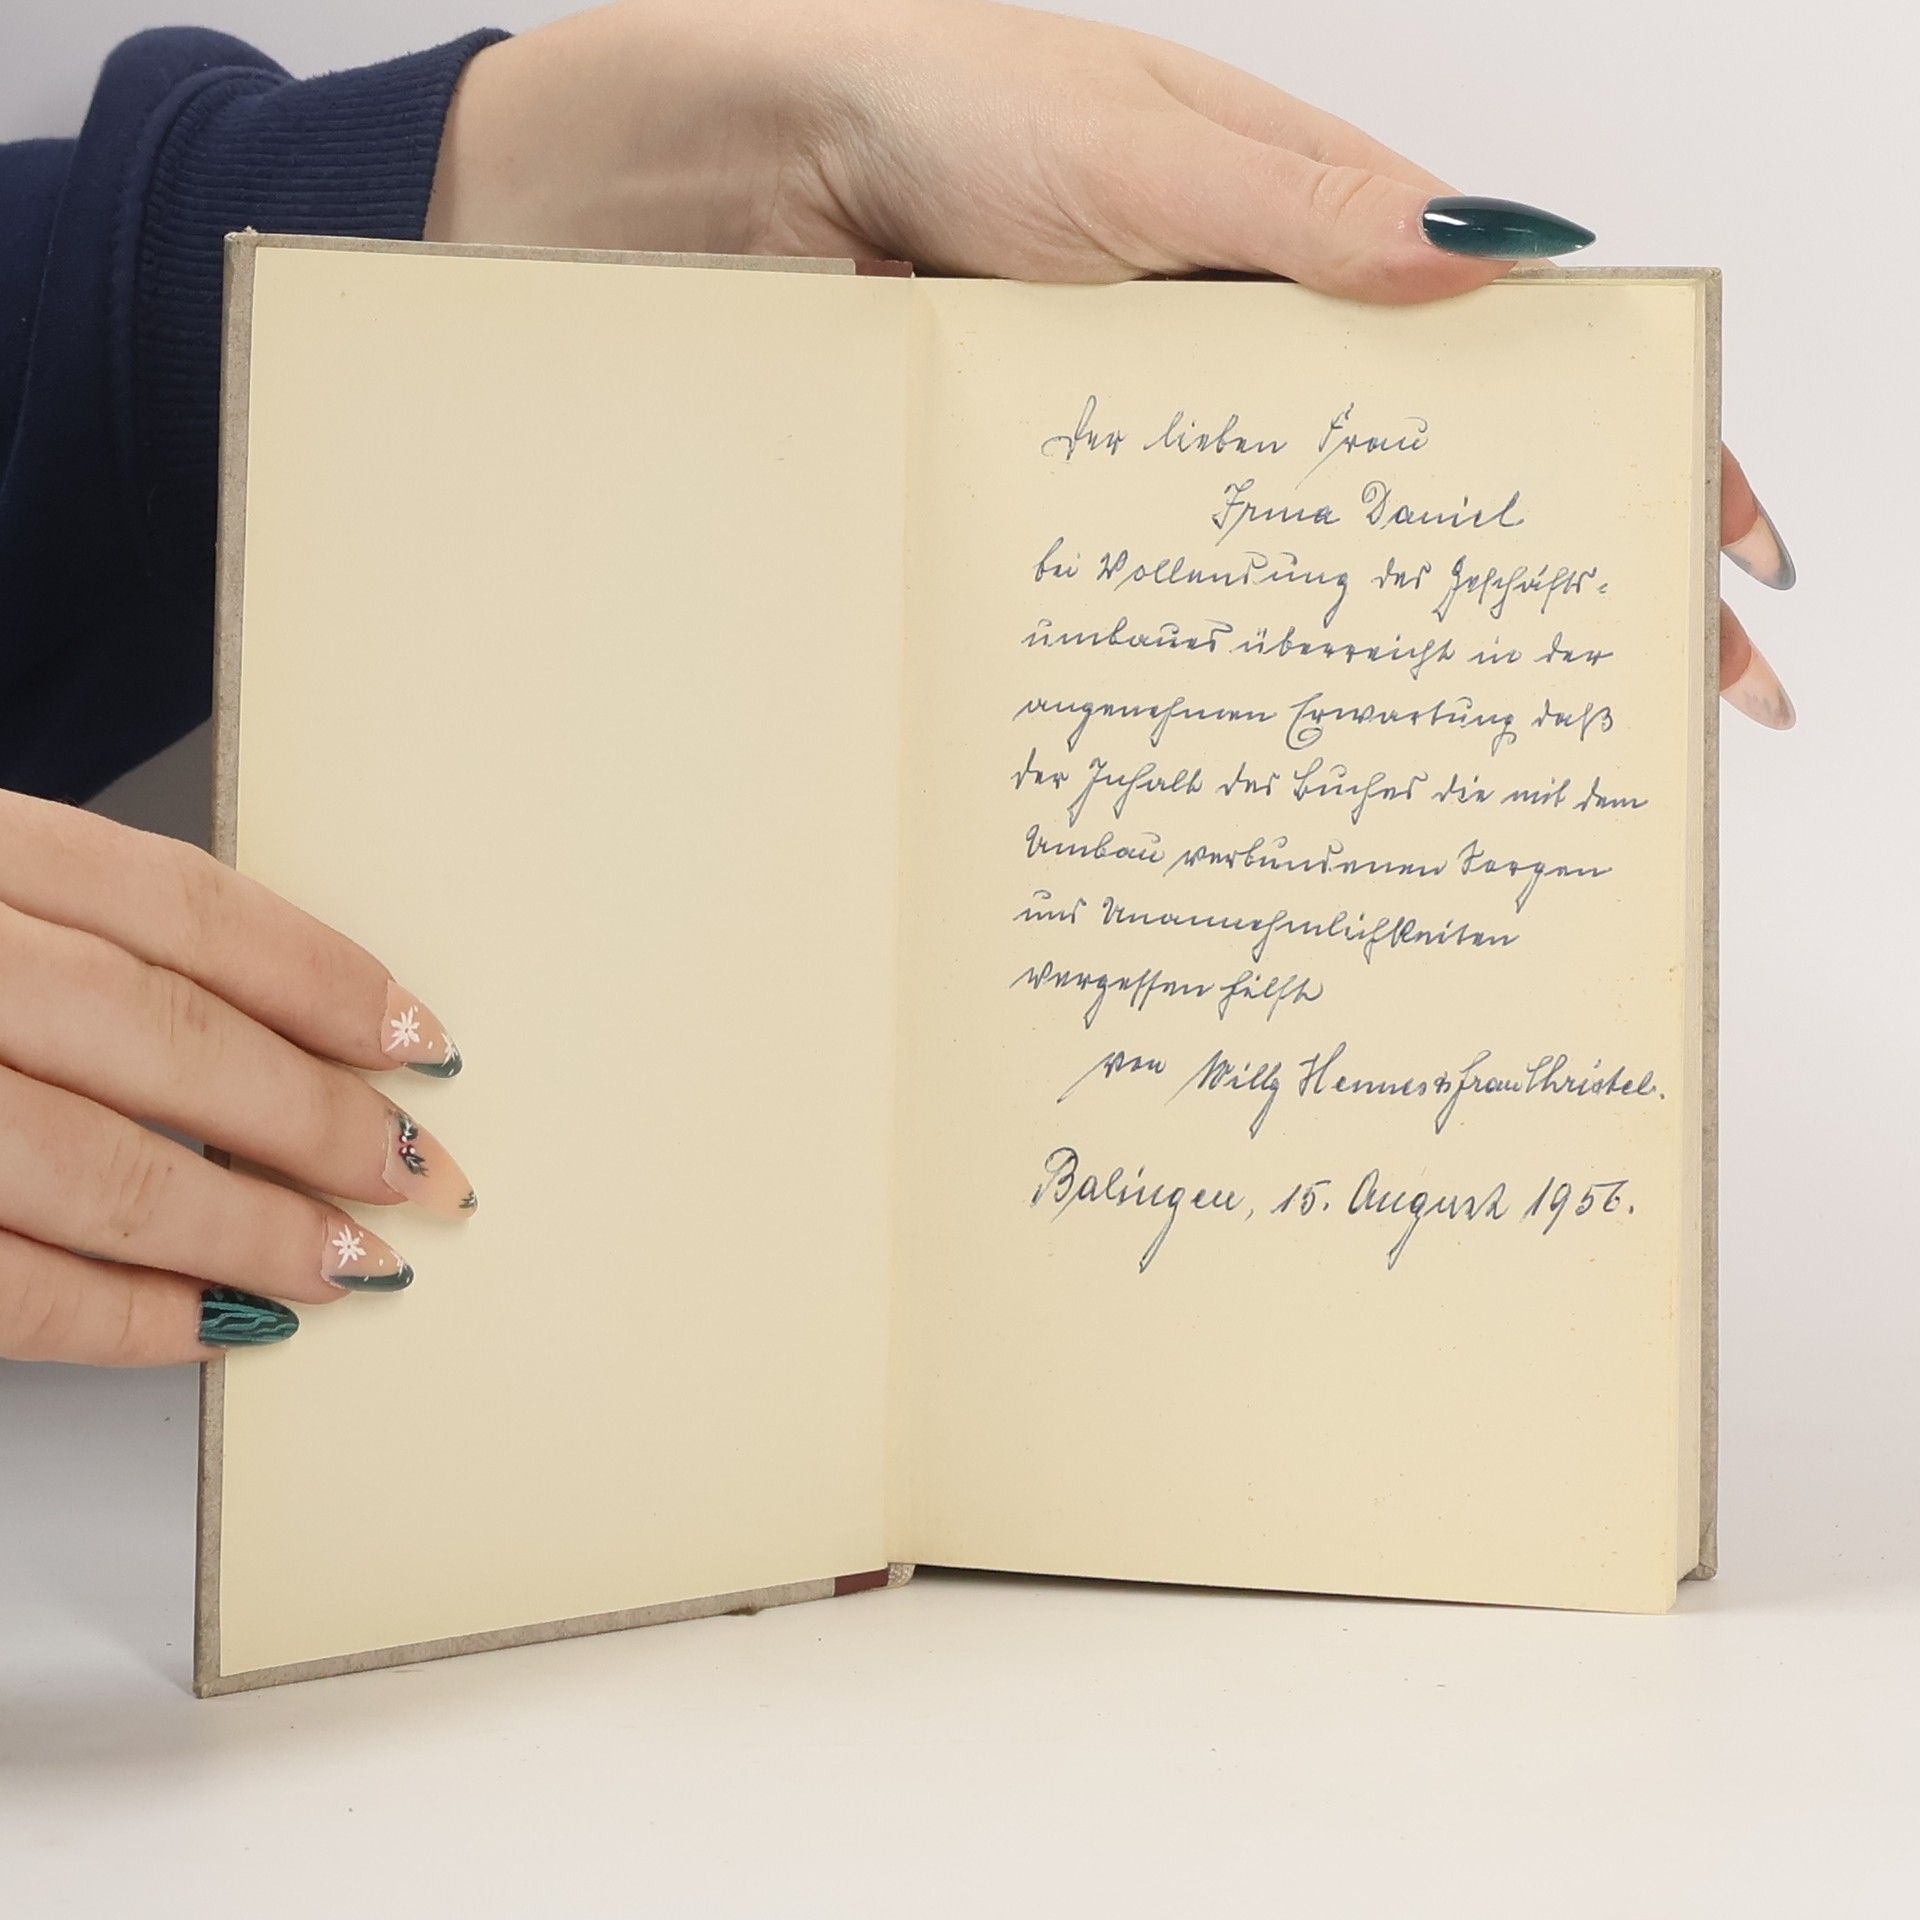 Der lieben Frau
Irma Daniel
bei Vollendung des Geschäfts-
umbaues überreicht in der
angenehmen Erwartung daß
der Inhalt des Buches die mit dem
Umbau verbundenen Sorgen
und Unannehmlichkeiten
vergessen hilft
von Willy Hennes & Frau Christel.
Balingen, 15. August 1956.